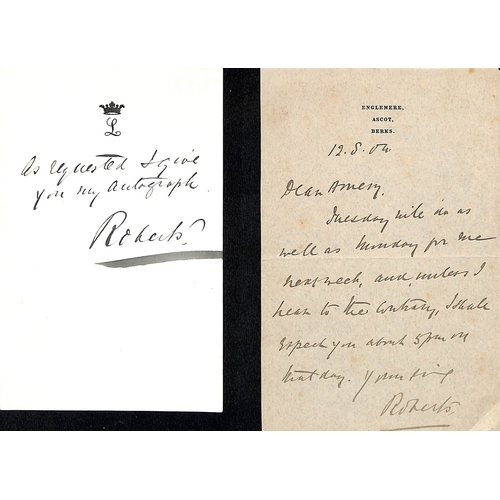 L
As requested I give
you my autograph.
Roberts.
ENGLEMERE,
ASCOT,
BERKS.
12.8.04
Dear Amery.
Tuesday will do as
well as Monday for me
next week, and, unless I
hear to the contrary, I shall
expect you about 5 pm on
that day. Yours
Roberts.